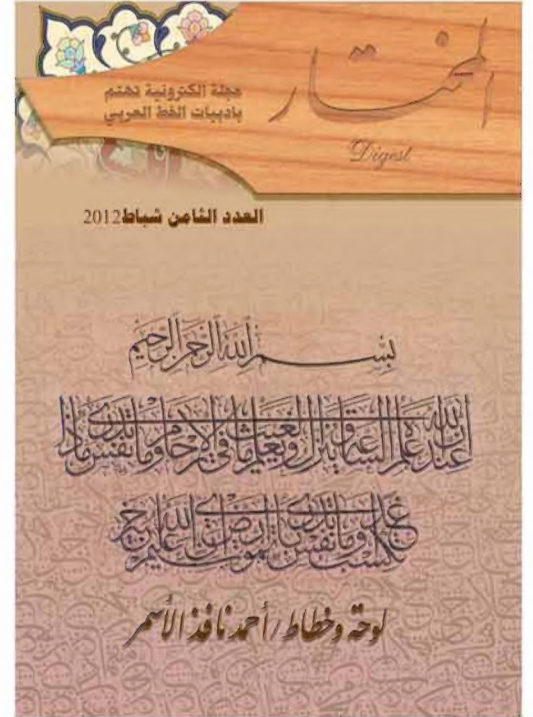 المختار
مجلة إلكترونية تهتم
بأدبيات الخط العربي
Digest
العدد الثامن شباط 2012
بسم الله الرحمن الرحيم
إن الله عنده علم الساعة وينزل الغيث ويعلم ما في الأرحام وما تدري نفس ماذا
تكسب غدا وما تدري نفس بأي أرض تموت إن الله عليم خبير
لوحة وخطاط / أحمد نافذ الأسمر